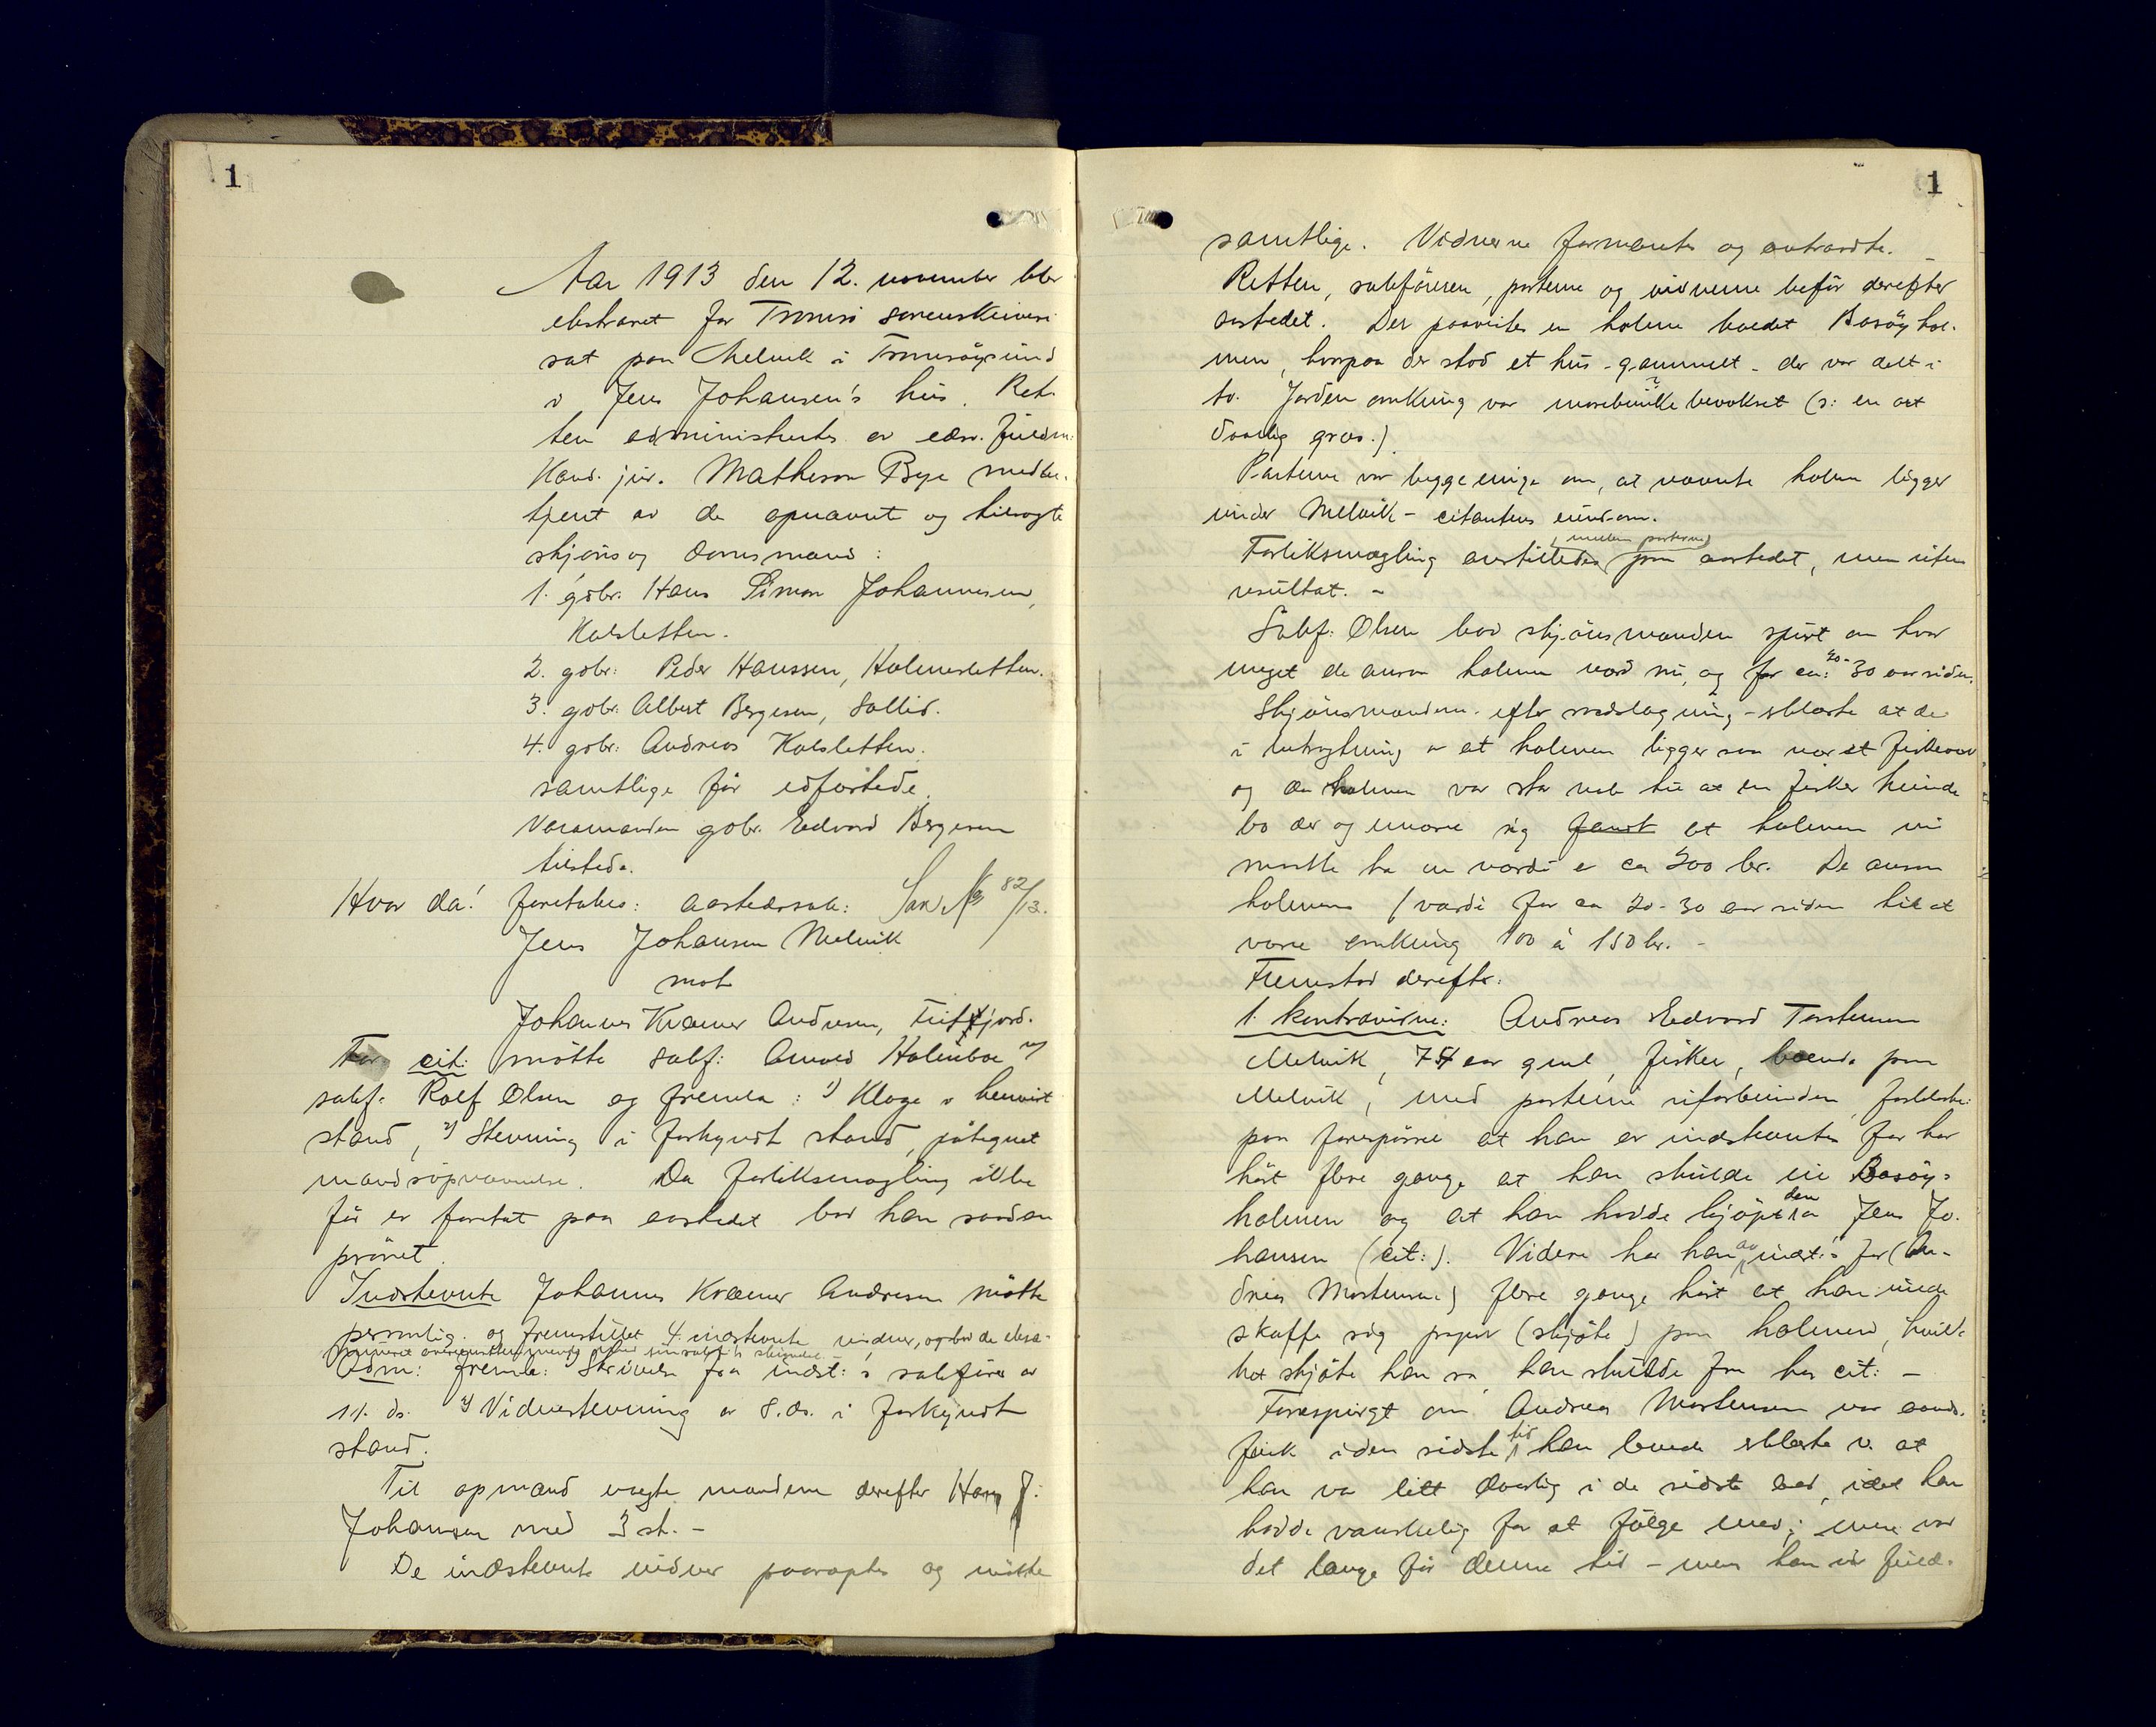 1
Aar 1913 den 12. november blev
ekstraret for Tromsø sorenskriveri
sat paa Melvik i Tromsøysund
i Jens Johansen's hus. Ret-
ten administrertes av edsv. fuldm.
Kand. jur. Matheson Bye medbe-
tjent av de opnævnt og tilsagte
skjøns og domsmænd:
1. gdbr. Hans Simon Johannesen,
Kalsletten.
2. gdbr: Peder Hanssen, Holmesletten.
3. gdbr: Albert Bergesen, Sollid.
4. gdbr: Andreas Kalsletten.
samtlige før edfæstede.
Varamanden gdbr. Edvard Bergesen
tilstede.
Hvor da! foretages: aastedssak: Sak № 82/13.
Jens Johansen Melvik
mot
Johannes Kræmer Andresen,
For cit: møtte sakf: Arnold Holmboe v/
sakf. Rolf Olsen og fremla: 1) Klage i henvist
stand, 2) Stevning i forkyndt stand, påtegnet
mandsopnævnelse. Da forliksmægling ikke
før er foretat paa aastedet bad han saadan
prøvet.
Indstevnte Johannes Kræmer Andresen møtte
personlig og fremstillet 4 indstevnte vidner, og bad de eksa-
mineret
Adm: fremla: Skrivelse fra indst:'s sakfører av
11. ds. 2) Vidnestevning av 8. ds. i forkyndt
stand.
Til opmand valgte mændene derefter Hans J:
Johansen med 3 st. -
De indstevnte vidner paaraaptes og møtte
1
samtlige. Vidnerne formantes og antraadte.
Retten, sakførerne, parterne og vidnerne befór derefter
aastedet. Der paavistes en holme kaldet Basøyhol-
men, hvorpaa der stod et hus - gammelt - der var delt i
to. Jorden omkring var bevokset (ɔ: en art
daarlig græs.)
Parterne var begge enige om, at nævnte holme ligger
under Melvik - citantens eiendom.
Forliksmægling anstilledes (mellem parterne) paa aastedet, men uten
resultat. -
Sakf: Olsen bad skjønsmændene spurt om hvor
meget de ansaa holmen værd nu, og for ca: 20-30 aar siden.
Skjønsmændene - efter raadslagning - erklærte at de
i betragtning av at holmen ligger saa nær et fiskevær
og da holmen var stor nok til at en fisker kunde
bo der og ernære sig fandt at holmen nu
maatte ha en værdi av ca 200 kr. De ansaa
holmens værdi for ca 20-30 aar siden til at
være omkring 100 à 150 kr. -
Fremstod derefter:
1. kontravidne: Andreas Edvard Torstensen
Melvik, 74 aar gml, fisker, boende paa
Melvik, med parterne uforbunden, forklarte
paa forespørsel at han er indstevntes far har
hørt flere gange at han skulde eie Basøy-
holmen og at han hadde kjøpt den av Jens Jo-
hansen (cit:). Videre har han av indst:'s far (An-
dreas Mortensen) flere gange hørt at han vilde
skaffe sig papir (skjøte) paa holmen, hvil-
ket skjøte han sa, han skulde faa hos cit: -
Forespurgt om Andreas Mortensen var aands-
frisk i den sidste tid han levede erklærte v. at
han var litt daarlig i de sidste aar, idet han
hadde vanskelig for at følge med; men var
det længe før denne tid - mens han var fuld-